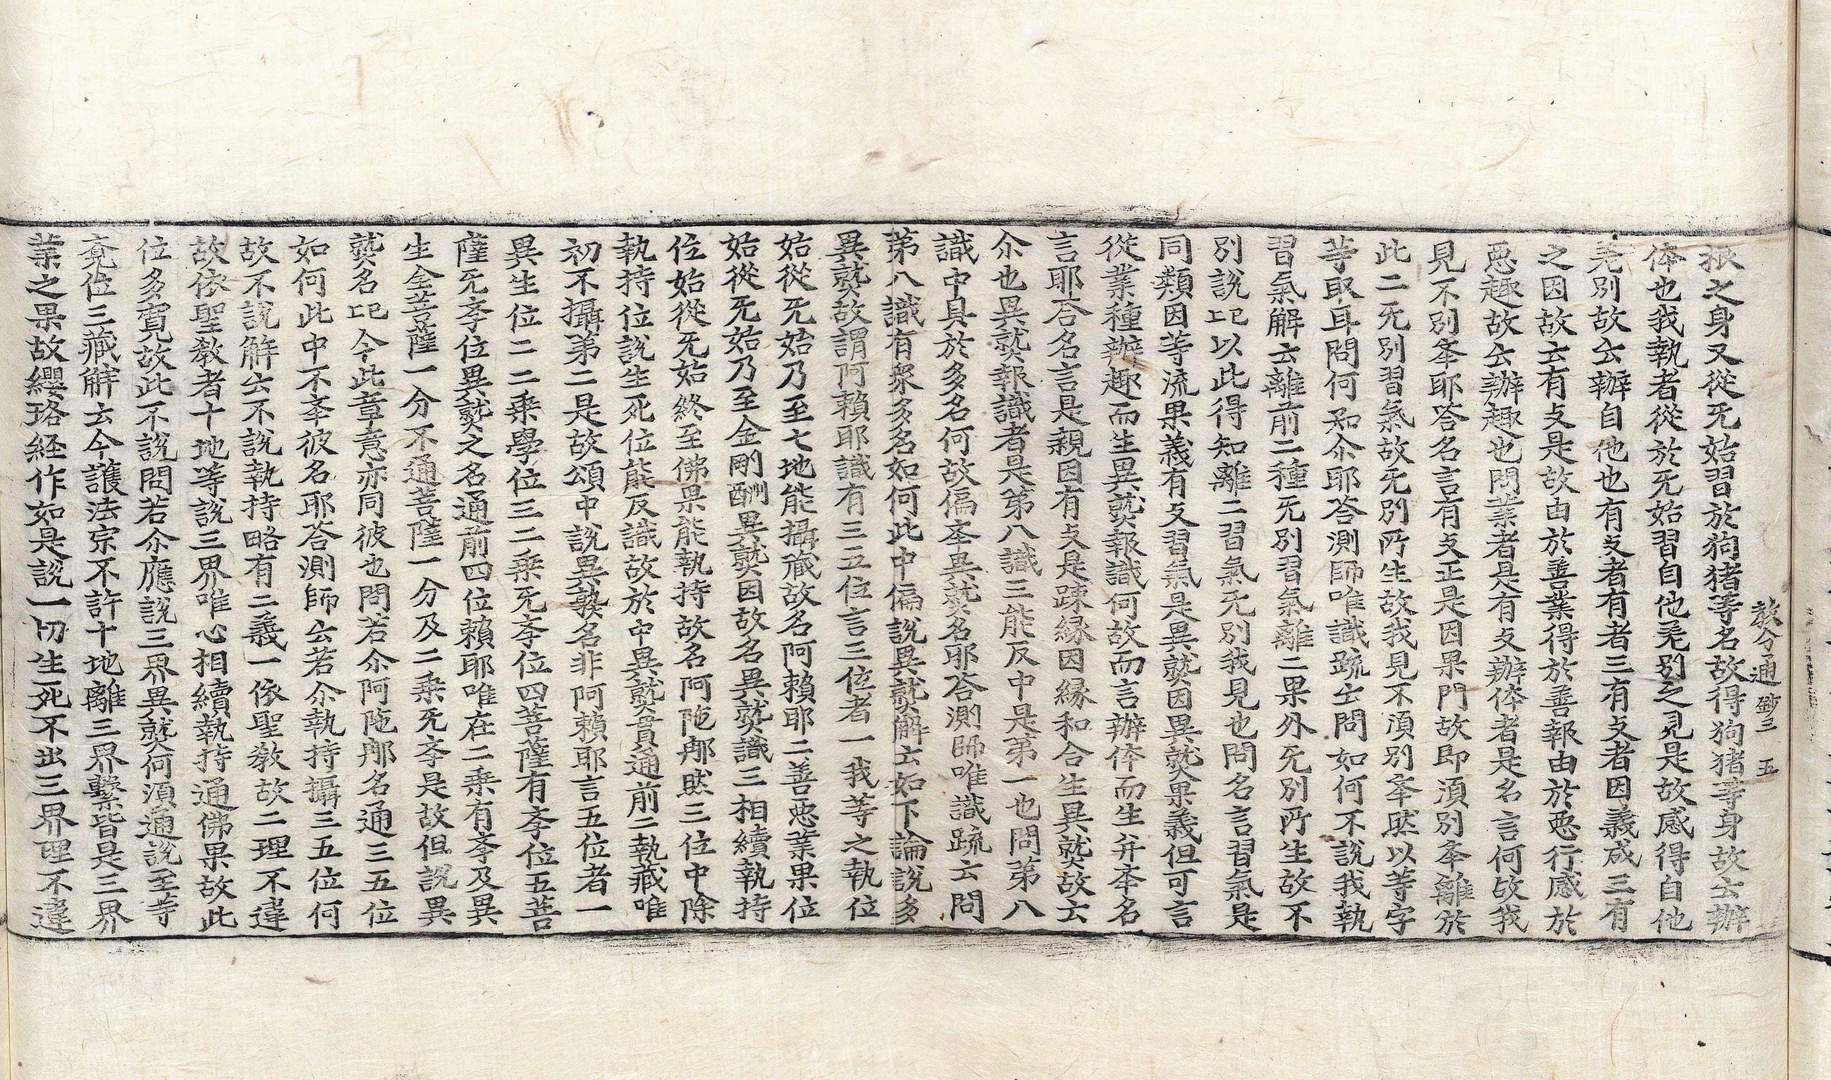 教分通鈔二 五
根之身又從无始習於狗猪等名故得狗猪等身故云辦
体也我執者從於无始習自他差別之見是故感得自他
差別故云辦自他也有支者有者三有支者因義成三有
之因故云有支是故由於善業得於善報由於惡行感於
惡趣故云辦趣也問業者是有支辦体者是名言何故我
見不別牽耶答名言有支正是因果門故即須別牽離於
此二无別習氣故无別所生故我見不須別牽然以等字
等取耳問何知尒耶答測師唯識疏云問如何不說我執
習氣解云離前二種无別習氣離二果外无別所生故不
別說已以此得知離二習氣无別我見也問名言習氣是
同類因等流果義有支習氣是異熟因異熟果義但可言
從業種辦趣而生異熟報識何故而言辦体而生并夲名
言耶答名言是親因有支是踈緣因緣和合生異熟故云
尒也異熟報識者是第八識三能反中是第一也問第八
識中具於多名何故偏夲異熟名耶答測師唯識疏云問
第八識有衆多名如何此中偏說異熟解云如下論說多
異熟故謂阿賴耶識有三五位言三位者一我等之執位
始從无始乃至七地能攝藏故名阿賴耶二善惡業果位
始從无始乃至金剛酬異熟因故名異熟識三相續執持
位始從无始終至佛果能執持故名阿陁那然三位中除
執持位說生死位能反識故於中異熟貫通前二執藏唯
初不攝第二是故頌中說異熟名非阿賴耶言五位者一
異生位二二乘學位三二乘无夲位四菩薩有夲位五菩
薩无夲位異熟之名通前四位賴耶唯在二乘有夲及異
生全菩薩一分不通菩薩一分及二乘无夲是故但說異
熟名已今此章意亦同彼也問若尒阿陁那名通三五位
如何此中不夲彼名耶答測師云若尒執持攝三五位何
故不說解云不說執持略有二義一依聖教故二理不違
故依聖教者十地等說三界唯心相續執持通佛果故此
位多實故此不說問若尒應說三界異熟何須通說至等
竟位三藏解云今護法宗不許十地離三界繫皆是三界
業之果故纓珞経作如是說一切生死不出三界理不違